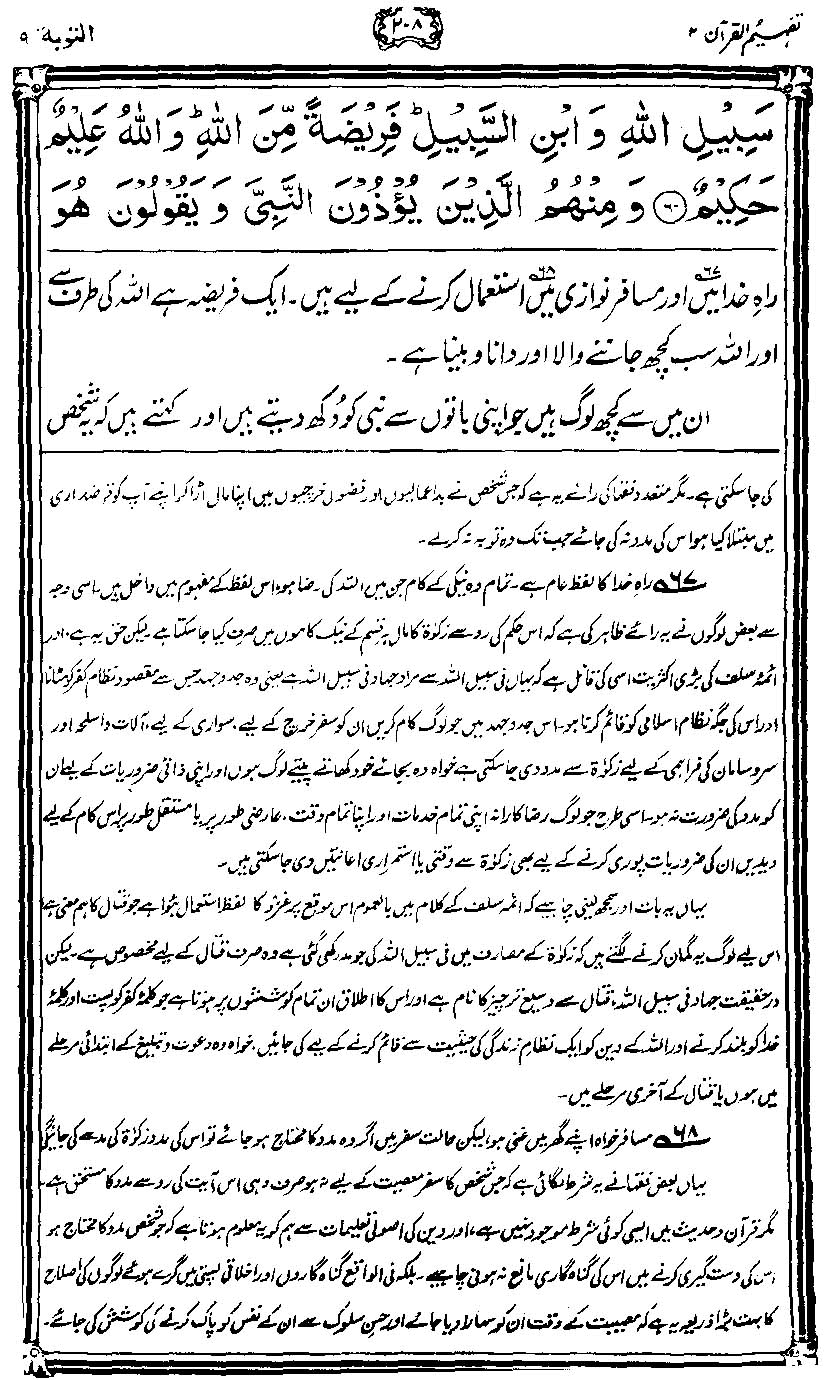 تفہیم القرآن ۲
۲۰۸
التوبۃ ۹
سَبِيْلِ اللهِ وَ ابْنِ السَّبِيْلِ ؕ فَرِيْضَةً مِّنَ اللهِ ؕ وَاللهُ عَلِيْمٌ
حَكِيْمٌ ۝۶۰ وَ مِنْهُمُ الَّذِيْنَ يُؤْذُوْنَ النَّبِيَّ وَ يَقُوْلُوْنَ هُوَ
راہِ خدا میں۶۷ اور مسافر نوازی میں۶۸ استعمال کرنے کے لیے ہیں۔ ایک فریضہ ہے اللہ کی طرف سے
اور اللہ سب کچھ جاننے والا اور دانا و بینا ہے۔
ان میں سے کچھ لوگ ہیں جو اپنی باتوں سے نبی کو دُکھ دیتے ہیں اور کہتے ہیں کہ یہ شخص
کی جا سکتی ہے۔ مگر متعدد فقہا کی رائے یہ ہے کہ جس شخص نے بد اعمالیوں اور فضول خرچیوں میں اپنا مال اڑا کر اپنے آپ کو قرضداری
میں مبتلا کیا ہو اس کی مدد نہ کی جائے جب تک وہ توبہ نہ کرلے۔
۶۷ راہِ خدا کا لفظ عام ہے۔ تمام وہ نیکی کے کام جن میں اللہ کی رضا ہو، اس لفظ کے مفہوم میں داخل ہیں۔ اسی وجہ
سے بعض لوگوں نے یہ رائے ظاہر کی ہے کہ اس حکم کی رو سے زکوٰۃ کا مال ہر قسم کے نیک کاموں میں صرف کیا جا سکتا ہے لیکن حق یہ ہے، اور
ائمۂ سلف کی بڑی اکثریت اسی کی قائل ہے کہ یہاں فی سبیل اللہ سے مراد جہاد فی سبیل اللہ ہے یعنی وہ جدوجہد جس سے مقصود نظام کفر کو مٹانا
اور اس کی جگہ نظام اسلامی کو قائم کرنا ہو۔ اس جدوجہد میں جو لوگ کام کریں ان کو سفر خرچ کے لیے، سواری کے لیے، آلات و اسلحہ اور
سروسامان کی فراہمی کے لیے زکوٰۃ سے مدد دی جا سکتی ہے خواہ وہ بجائے خود کھاتے پیتے لوگ ہوں اور اپنی ذاتی ضروریات کے لیے ان
کو مدد کی ضرورت نہ ہو۔ اسی طرح جو لوگ رضاکارانہ اپنی تمام خدمات اور اپنا تمام وقت، عارضی طور پر یا مستقل طور پر اس کام کے لیے
دیدیں ان کی ضروریات پوری کرنے کے لیے بھی زکوٰۃ سے وقتی یا استمراری اعانتیں دی جا سکتی ہیں۔
یہاں یہ بات اور سمجھ لینی چاہیے کہ ائمہ سلف کے کلام میں بالعموم اس موقع پر غزو کا لفظ استعمال ہوا ہے جو قتال کا ہم معنی ہے
اس لیے لوگ یہ گمان کرنے لگتے ہیں کہ زکوٰۃ کے مصارف میں فی سبیل اللہ کی جو مد رکھی گئی ہے وہ صرف قتال کے لیے مخصوص ہے۔ لیکن
درحقیقت جہاد فی سبیل اللہ، قتال سے وسیع تر چیز کا نام ہے اور اس کا اطلاق ان تمام کوششوں پر ہوتا ہے جو کلمۂ کفر کو پست اور کلمۂ
خدا کو بلند کرنے اور اللہ کے دین کو ایک نظام زندگی کی حیثیت سے قائم کرنے کے لیے کی جائیں، خواہ وہ دعوت و تبلیغ کے ابتدائی مرحلے
میں ہوں یا قتال کے آخری مرحلے میں۔
۶۸ مسافر خواہ اپنے گھر میں غنی ہو، لیکن حالت سفر میں اگر وہ مدد کا محتاج ہو جائے تو اس کی مدد زکوٰۃ کی مد سے کی جائیگی
یہاں بعض فقہا نے یہ شرط لگائی ہے کہ جس شخص کا سفر معصیت کے لیے نہ ہو صرف وہی اس آیت کی رو سے مدد کا مستحق ہے۔
مگر قرآن و حدیث میں ایسی کوئی شرط موجود نہیں ہے، اور دین کی اصولی تعلیمات سے ہم کو یہ معلوم ہوتا ہے کہ جو شخص مدد کا محتاج ہو
اس کی دست گیری کرنے میں اس کی گناہ گاری مانع نہ ہونی چاہیے۔ بلکہ فی الواقع گناہ گاروں اور اخلاقی پستی میں گرے ہوئے لوگوں کی اصلاح
کا بہت بڑا ذریعہ یہ ہے کہ مصیبت کے وقت ان کو سہارا دیا جائے اور حسن سلوک سے ان کے نفس کو پاک کرنے کی کوشش کی جائے۔